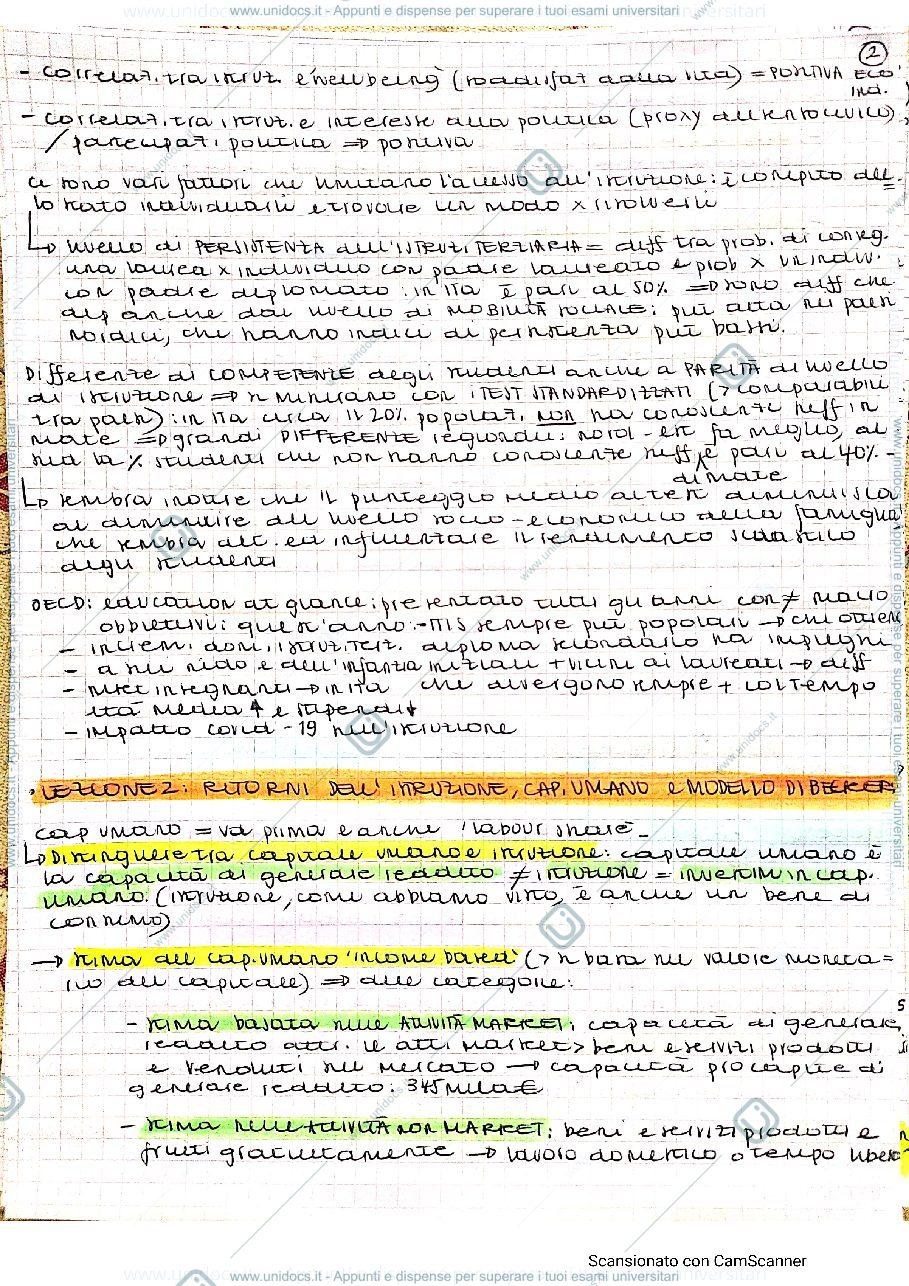 www.unidocs.it - Appunti e dispense per superare i tuoi esami universitari
2
- correlaz. tra istruz. e 'wellbeing' (soddisfaz dalla vita) = POSITIVA ECO
ind.
- correlaz. tra istruz. e interesse alla politica (proxy
/ partecipaz. politica => positiva
ci sono vari fattori che limitano l'accesso all'istruzione: è compito del=
lo stato individuarli e trovare un modo x risolverli
↳ livello di PERSISTENZA dell'ISTRUZ. TERZIARIA = diff tra prob. di conseg.
una laurea x individuo con padre laureato e prob x un indiv.
con padre diplomato: in ITA è pari al 50% => sono diff che
dip anche dal livello di MOBILITÀ SOCIALE: più alta nei paesi
nordici, che hanno indici di persistenza più bassi.
Differenze di COMPETENZE degli studenti anche a PARITÀ di livello
di istruzione => si misurano con i TEST STANDARDIZZATI (> comparabili
tra paesi): in ITA circa il 20% popolaz. NON ha conoscenze suff in
mate => grandi DIFFERENZE regionali: nord-est fa meglio, al
sud la % studenti che non hanno conoscenze suff è pari al 40%.-
di mate
↳ sembra inoltre che il punteggio medio ai test diminuisca
al diminuire del livello socio-economico della famiglia
che sembra all. ed influenzare il rendimento scolastico
degli studenti
OECD: education at glance: presentato tutti gli anni con ≠ macro
obbiettivi: quest'anno: - ITIS sempre più popolari → chi ottiene
- increm. doni. istruz. terz. diploma secondario ha impieghi
- asili nido e dell'infanzia iniziali + vicini ai laureati → diff
- insegnanti → in ITA che divergono sempre + col tempo
età media ↑ e stipendi ↓
- impatto covid-19 sull'istruzione
. LEZIONE 2: RITORNI DELL'ISTRUZIONE, CAP. UMANO e MODELLO DI BECKER
cap umano = va prima e anche 'labour share'
↳ Distinguere tra capitale umano e istruzione: capitale umano è
la capacità di generare reddito ≠ istruzione = investim in cap.
umano. (istruzione, come abbiamo visto, è anche un bene di
consumo)
→ stima del cap. umano 'income based' (> si basa sul valore moneta=
rio del capitale) => due categorie:
- stima basata sulle ATTIVITÀ MARKET: capacità di generare
reddito attr. le atti market > beni e servizi prodotti
e venduti sul mercato → capacità procapite di
generare reddito: 345 mila €
- stima sulle ATTIVITÀ NON MARKET: beni e servizi prodotti e
fruiti gratuitamente → lavoro domestico o tempo libero
Scansionato con CamScanner
www.unidocs.it - Appunti e dispense per superare i tuoi esami universitari